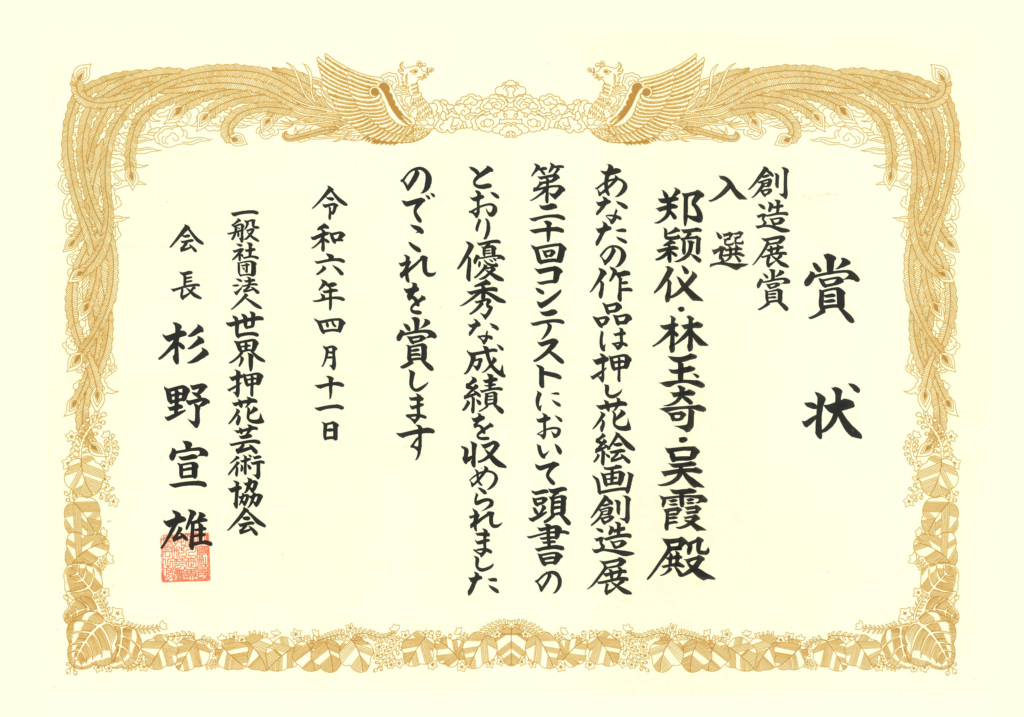 賞状
創造展賞
入選
郑颖仪・林玉奇・吴霞殿
あなたの作品は押し花絵画創造展
第二十回コンテストにおいて頭書の
とおり優秀な成績を収められました
のでこれを賞します
令和六年四月十一日
一般社団法人世界押花芸術協会
会長 杉野宣雄